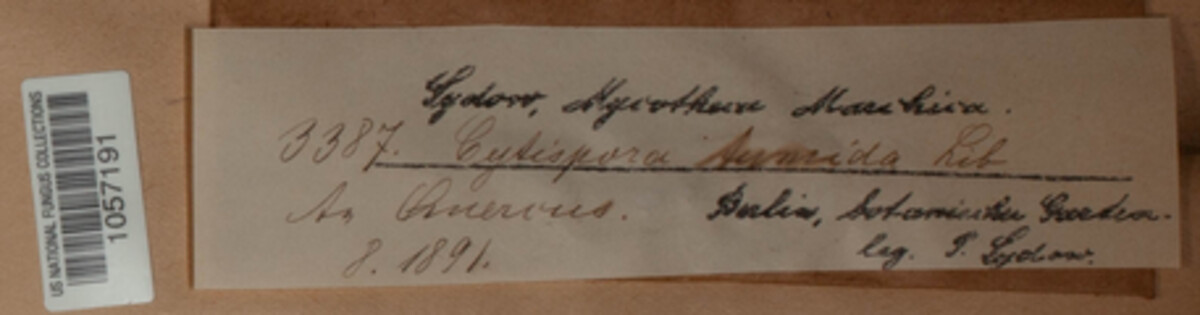 Sydow, Mycotheca Marchica.
3387. Cytispora tumida Lib
An Quercus.
Berlin, botanischer Garten.
leg. P. Sydow.
8. 1891.
US NATIONAL FUNGUS COLLECTIONS
1057191